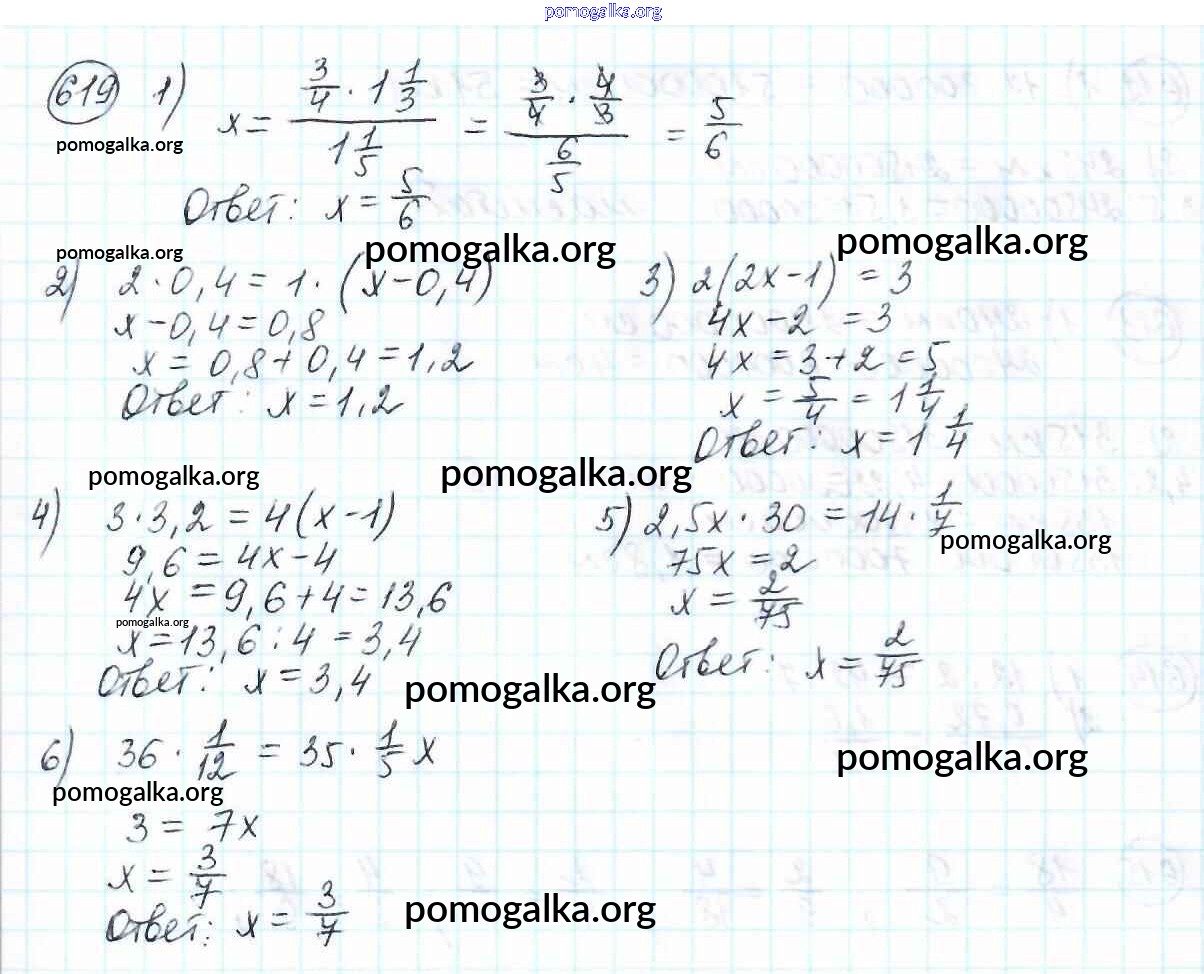 pomogalka.org
619 1) x = (3/4 · 1 1/3) / (1 1/5) = (3/4 · 4/3) / (6/5) = 5/6
pomogalka.org
Ответ: x = 5/6
pomogalka.org pomogalka.org pomogalka.org
2) 2 · 0,4 = 1 · (x – 0,4)
x – 0,4 = 0,8
x = 0,8 + 0,4 = 1,2
Ответ: x = 1,2
3) 2(2x – 1) = 3
4x – 2 = 3
4x = 3 + 2 = 5
x = 5/4 = 1 1/4
Ответ: x = 1 1/4
pomogalka.org pomogalka.org
4) 3 · 3,2 = 4(x – 1)
9,6 = 4x – 4
4x = 9,6 + 4 = 13,6
pomogalka.org
x = 13,6 : 4 = 3,4
Ответ: x = 3,4
5) 2,5x · 30 = 14 · 1/7
pomogalka.org
75x = 2
x = 2/75
Ответ: x = 2/75
pomogalka.org
6) 36 · 1/12 = 35 · 1/5 x
pomogalka.org
pomogalka.org
3 = 7x
x = 3/7
Ответ: x = 3/7
pomogalka.org